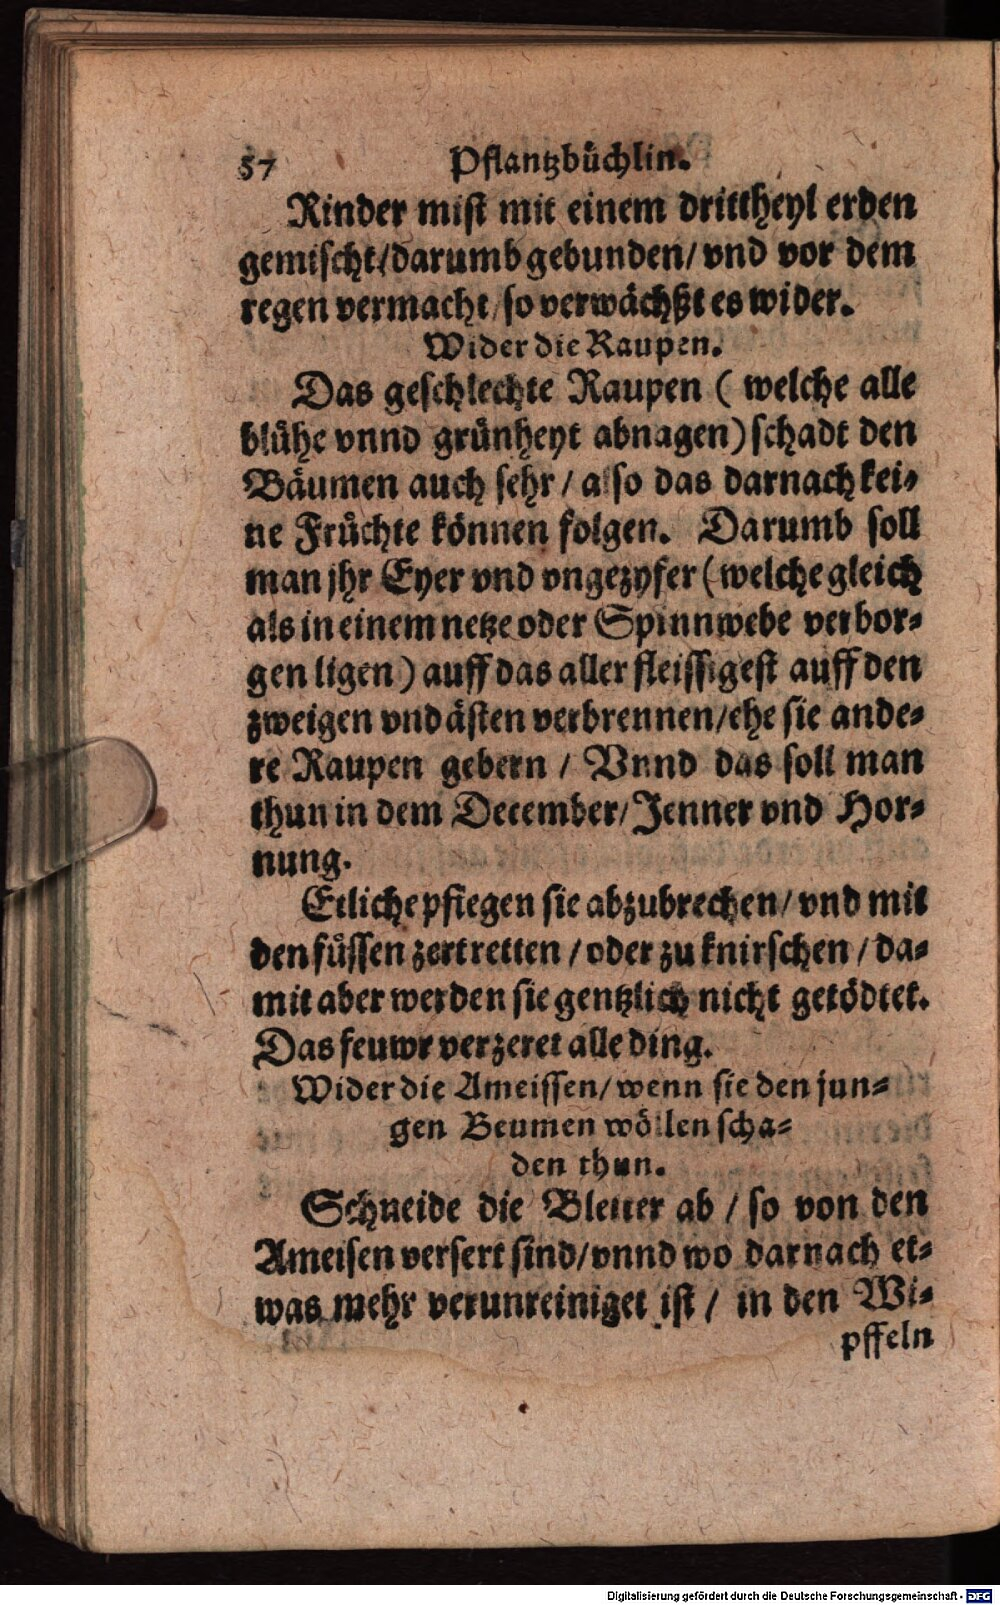 57 Pflantzbüchlin.
Rinder mist mit einem drittheyl erden
gemischt/darumb gebunden/ vnd vor dem
regen vermacht/so verwächßt es wider.
Wider die Raupen.
Das geschlechte Raupen ( welche alle
blühe vnnd grünheyt abnagen) schadt den
Bäumen auch sehr / also das darnach kei-
ne Früchte können folgen. Darumb soll
man jhr Eyer vnd vngezyfer (welche gleich
als in einem netze oder Spinnwebe verbor-
gen ligen) auff das aller fleissigest auff den
zweigen vnd ästen verbrennen/ehe sie ande-
re Raupen gebern / Vnnd das soll man
thun in dem December/Jenner vnd Hor-
nung.
Etliche pflegen sie abzubrechen/ vnd mit
den füssen zertretten / oder zu knirschen / da-
mit aber werden sie gentzlich nicht getödtet.
Das feuwr verzeret alle ding.
Wider die Ameissen/ wenn sie den jun-
gen Beumen wöllen scha-
den thun.
Schneide die Bletter ab / so von den
Ameisen versert sind/vnnd wo darnach et-
was mehr verunreiniget ist / in den Wi-
pffeln
Digitalisierung gefördert durch die Deutsche Forschungsgemeinschaft - DFG